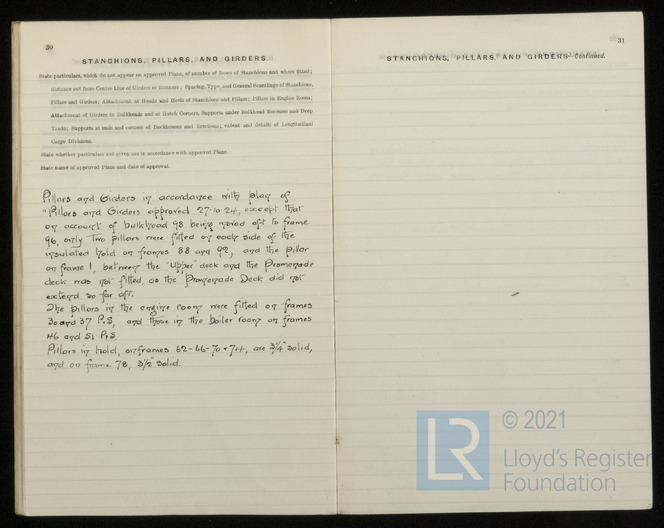 30
STANCHIONS, PILLARS, AND GIRDERS.
State particulars, which do not appear on approved Plans, of number of Rows of Stanchions and where fitted;
distance out from Centre Line of Girders or Runners; Spacing, Type, and General Scantlings of Stanchions,
Pillars and Girders; Attachment at Heads and Heels of Stanchions and Pillars; Pillars in Engine Room;
Attachment of Girders to Bulkheads and at Hatch Corners, Supports under Bulkhead Recesses and Deep
Tanks; Supports at ends and corners of Deckhouses and Erections; extent and details of Longitudinal
Cargo Divisions.
State whether particulars not given are in accordance with approved Plans.
State name of approved Plans and date of approval.
Pillars and Girders in accordance with plan of
"Pillars and Girders approved 27-10-24, except that
on account of bulkhead 98 being moved aft to frame
96, only Two pillars were fitted on each side of the
insulated hold on frames 88 and 92, and the pillar
on frame 1, between the "Upper" deck and the Promenade
deck was not fitted, as the Promenade Deck did not
extend so far aft.
The pillars in the engine room were fitted on frames
30 and 37 P.S, and those in the boiler room on frames
46 and 51 P&S.
Pillars in hold, on frames 62-66-70+74, are 3¼" solid,
and on frame 78, 3½" solid.
31
STANCHIONS, PILLARS, AND GIRDERS—Continued.
LR
© 2021
Lloyd's Register
Foundation